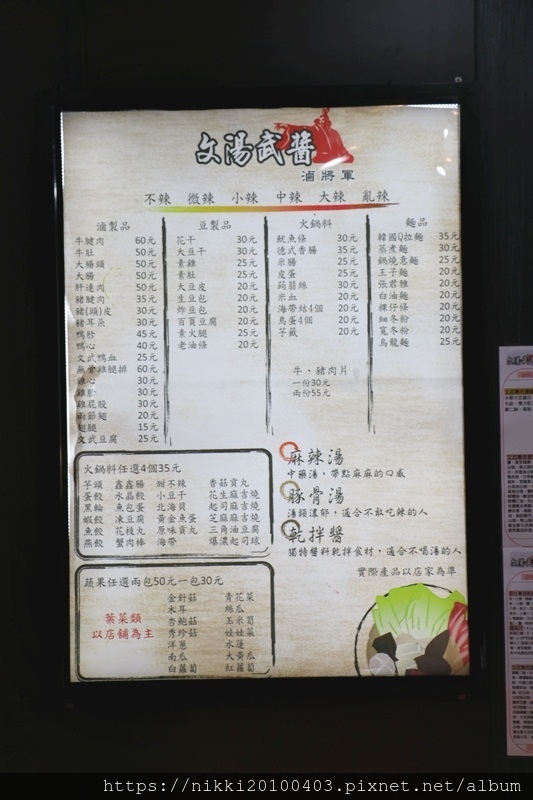 文湯武醬
滷將軍
不辣 微辣 小辣 中辣 大辣 亂辣
滷製品
牛腱肉 60元
牛肚 50元
大腸頭 50元
大腸 50元
肝連肉 50元
豬腱肉 35元
豬(頭)皮 30元
豬耳朵 30元
鴨胗 45元
鴨心 40元
文武鴨血 25元
無骨雞腿排 60元
雞心 30元
雞胗 30元
雞屁股 30元
兩節翅 20元
翅腿 15元
文武豆腐 25元
豆製品
花干 30元
大豆干 30元
素雞 25元
素肚 25元
大豆皮 20元
生豆包 20元
炸豆包 20元
百頁豆腐 20元
素火腿 25元
老油條 20元
火鍋料
魷魚條 30元
德式香腸 35元
米腸 25元
皮蛋 25元
蒟蒻絲 30元
米血 20元
海帶結4個 20元
鳥蛋4個 20元
芋籤 20元
牛、豬肉片
一份30元
兩份55元
麵品
韓國Q拉麵 35元
蒸煮麵 30元
鍋燒意麵 25元
王子麵 20元
張君雅 20元
白油麵 20元
粿仔條 20元
細冬粉 20元
寬冬粉 20元
烏龍麵 25元
火鍋料任選4個35元
芋頭 鑫鑫腸 甜不辣 香菇貢丸
蛋餃 水晶餃 小豆干 花生麻吉燒
黑輪 魚包蛋 北海貝 起司麻吉燒
蝦餃 凍豆腐 黃金魚蛋 芝麻麻吉燒
魚餃 花枝丸 原味貢丸 三角油豆腐
燕餃 蟹肉棒 海帶 爆漿起司球
蔬果任選兩包50元一包30元
葉菜類
以店舖為主
金針菇 青花菜
木耳 絲瓜
杏鮑菇 玉米筍
秀珍菇 娃娃菜
洋蔥 水蓮
南瓜 大黃瓜
白蘿蔔 紅蘿蔔
麻辣湯
中藥湯，帶點麻麻的口感
豚骨湯
湯頭濃郁，適合不敢吃辣的人
乾拌醬
獨特醬料乾拌食材，適合不喝湯的人
實際產品以店家為準
https://nikki20100403.pixnet.net/album